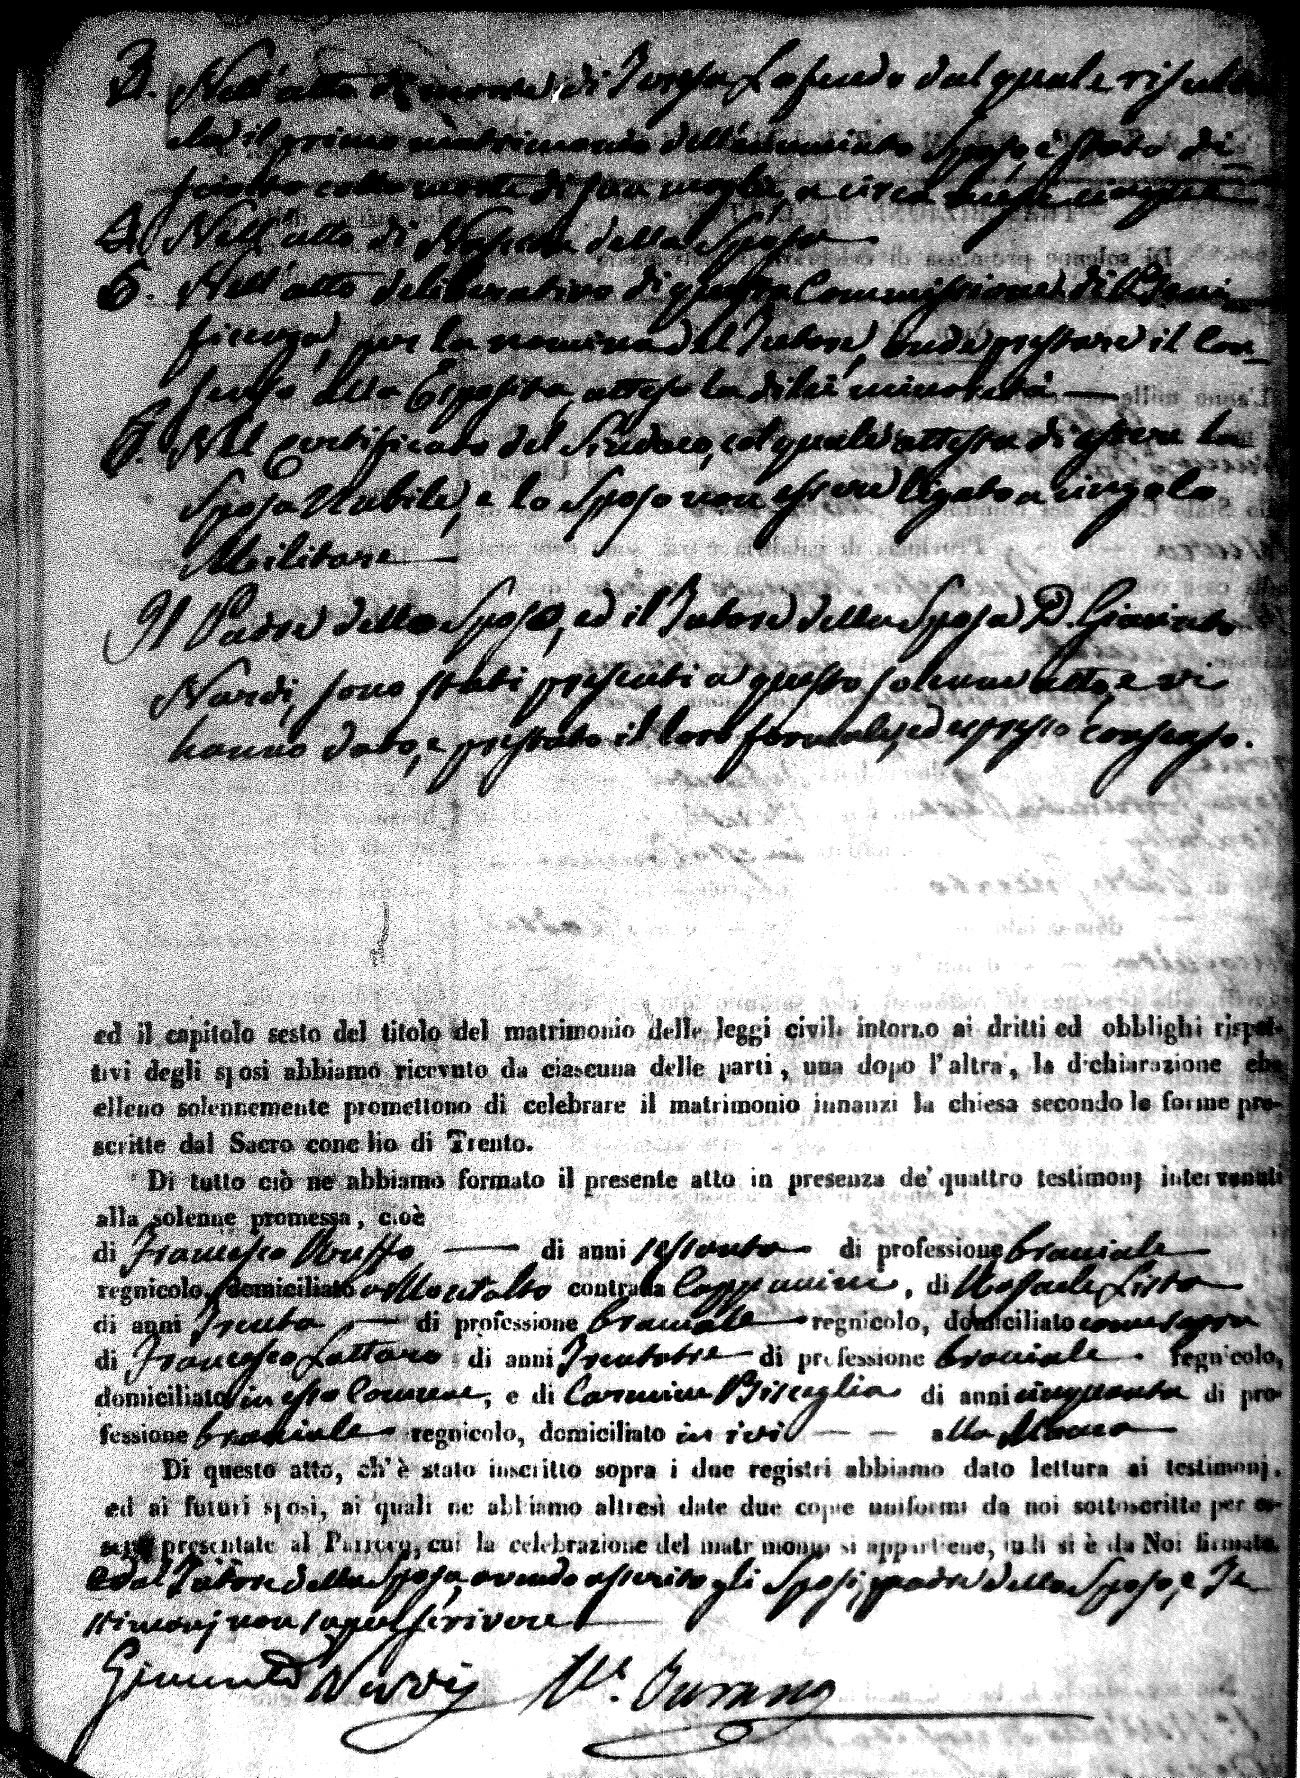 3. Nell'atto di morte di Teresa Lofeudo dal quale risulta
che il primo matrimonio dell'enunciato Sposo è stato di-
sciolto colla morte di sua moglie, a circa mesi cinque
4. Nell'atto di Nascita della Sposa —
5. Nell'atto deliberativo di questa Commissione di Beni-
ficenza, per la nomina del Tutore, onde prestare il Con-
senso alla Esposita, atteso la di lei minorità —
6. Nel Certificato del Sindaco, col quale attesta di essere la
Sposa Nubile, e lo Sposo non essere ligato a cingolo
Militare —
Il Padre dello Sposo, ed il Tutore della Sposa D. Giacinto
Nardi, sono stati presenti a questo solenne atto, e vi
hanno dato, e prestato il loro formale, ed espresso consenso.
ed il capitolo sesto del titolo del matrimonio delle leggi civili intorno ai dritti ed obblighi rispet-
tivi degli sposi abbiamo ricevuto da ciascuna delle parti, una dopo l'altra, la dichiarazione che
elleno solennemente promettono di celebrare il matrimonio innanzi la chiesa secondo le forme pre-
scritte dal Sacro concilio di Trento.
Di tutto ciò ne abbiamo formato il presente atto in presenza de' quattro testimonj intervenuti
alla solenne promessa, cioè
di Francesco Ruffo — di anni sessanta di professione bracciale
regnicolo, domiciliato a Montalto contrada Cappuccini, di Raffaele Listo
di anni Trenta — di professione bracciale regnicolo, domiciliato come sopra
di Francesco Lattaro di anni Trentatre di professione bracciale regnicolo,
domiciliato in esso Comune, e di Carmine Bisceglia di anni cinquanta di pro-
fessione bracciale regnicolo, domiciliato in ivi — — alla
Di questo atto, ch'è stato inscritto sopra i due registri abbiamo dato lettura ai testimonj,
ed ai futuri sposi, ai quali ne abbiamo altresì date due copie uniformi da noi sottoscritte per es-
sere presentate al Parroco, cui la celebrazione del matrimonio si appartiene, indi si è da Noi firmato,
e dal Tutore della Sposa, avendo asserito gli Sposi, padre dello Sposo, e Te-
stimonj non saper scrivere —
Giacinto Nardi